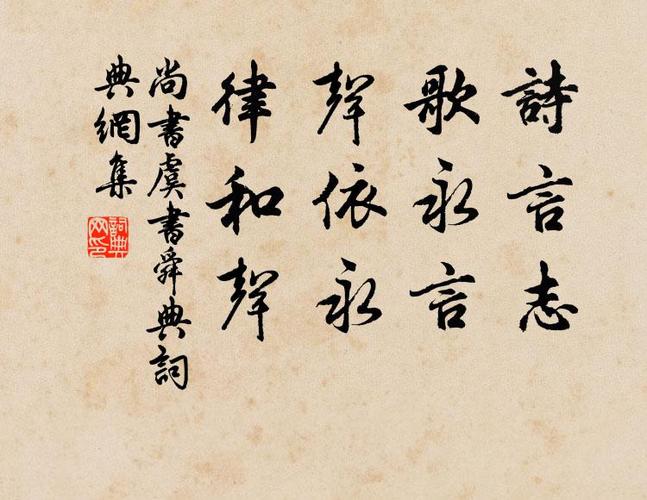 詩言志
歌永言
聲依永
律和聲
尚書虞書舜典詞
典網集
詞典網印